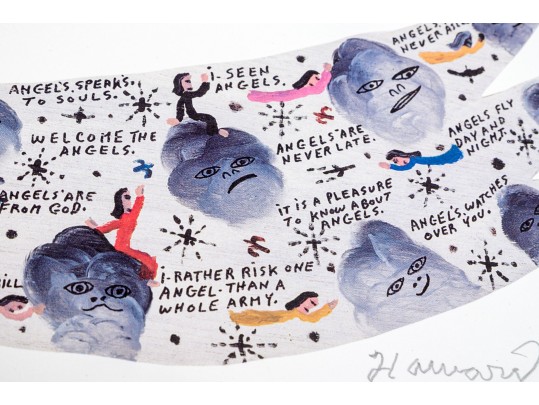 ANGELS. SPEAKS.
TO SOULS.
i-SEEN
ANGELS.
ANGELS ARE
NEVER
WELCOME THE
ANGELS.
ANGELS ARE
NEVER LATE.
ANGELS FLY
DAY AND
NIGHT.
ANGELS ARE
FROM GOD.
iT iS A PLEASURE
TO KNOW ABOUT
ANGELS.
ANGELS. WATCHES
OVER YOU.
i-RATHER RISK ONE
ANGEL-THAN A
WHOLE ARMY.
Howard